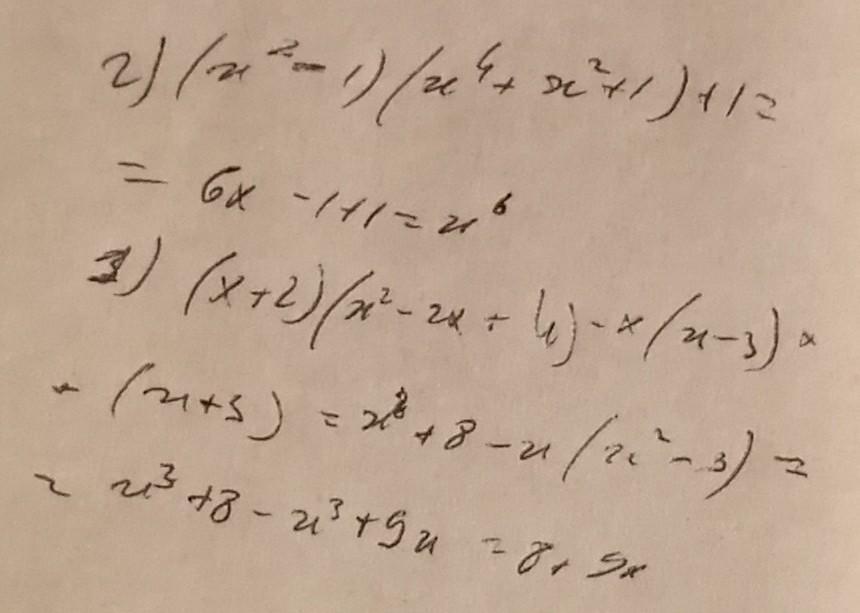 2) (x² - 1)(x⁴ + x² + 1) + 1 =
= 6x - 1 + 1 = x⁶
3) (x + 2)(x² - 2x + 4) - x(x - 3) ×
× (x + 3) = x³ + 8 - x(x² - 3) =
= x³ + 8 - x³ + 9x = 8 + 9x